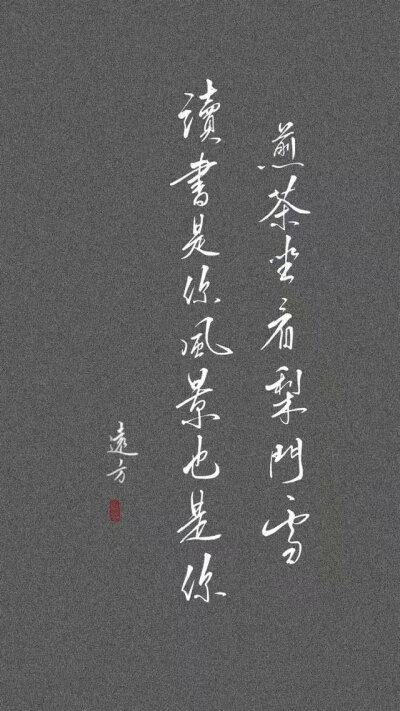 煎茶坐看梨門雪
讀書是你風景也是你
遠方